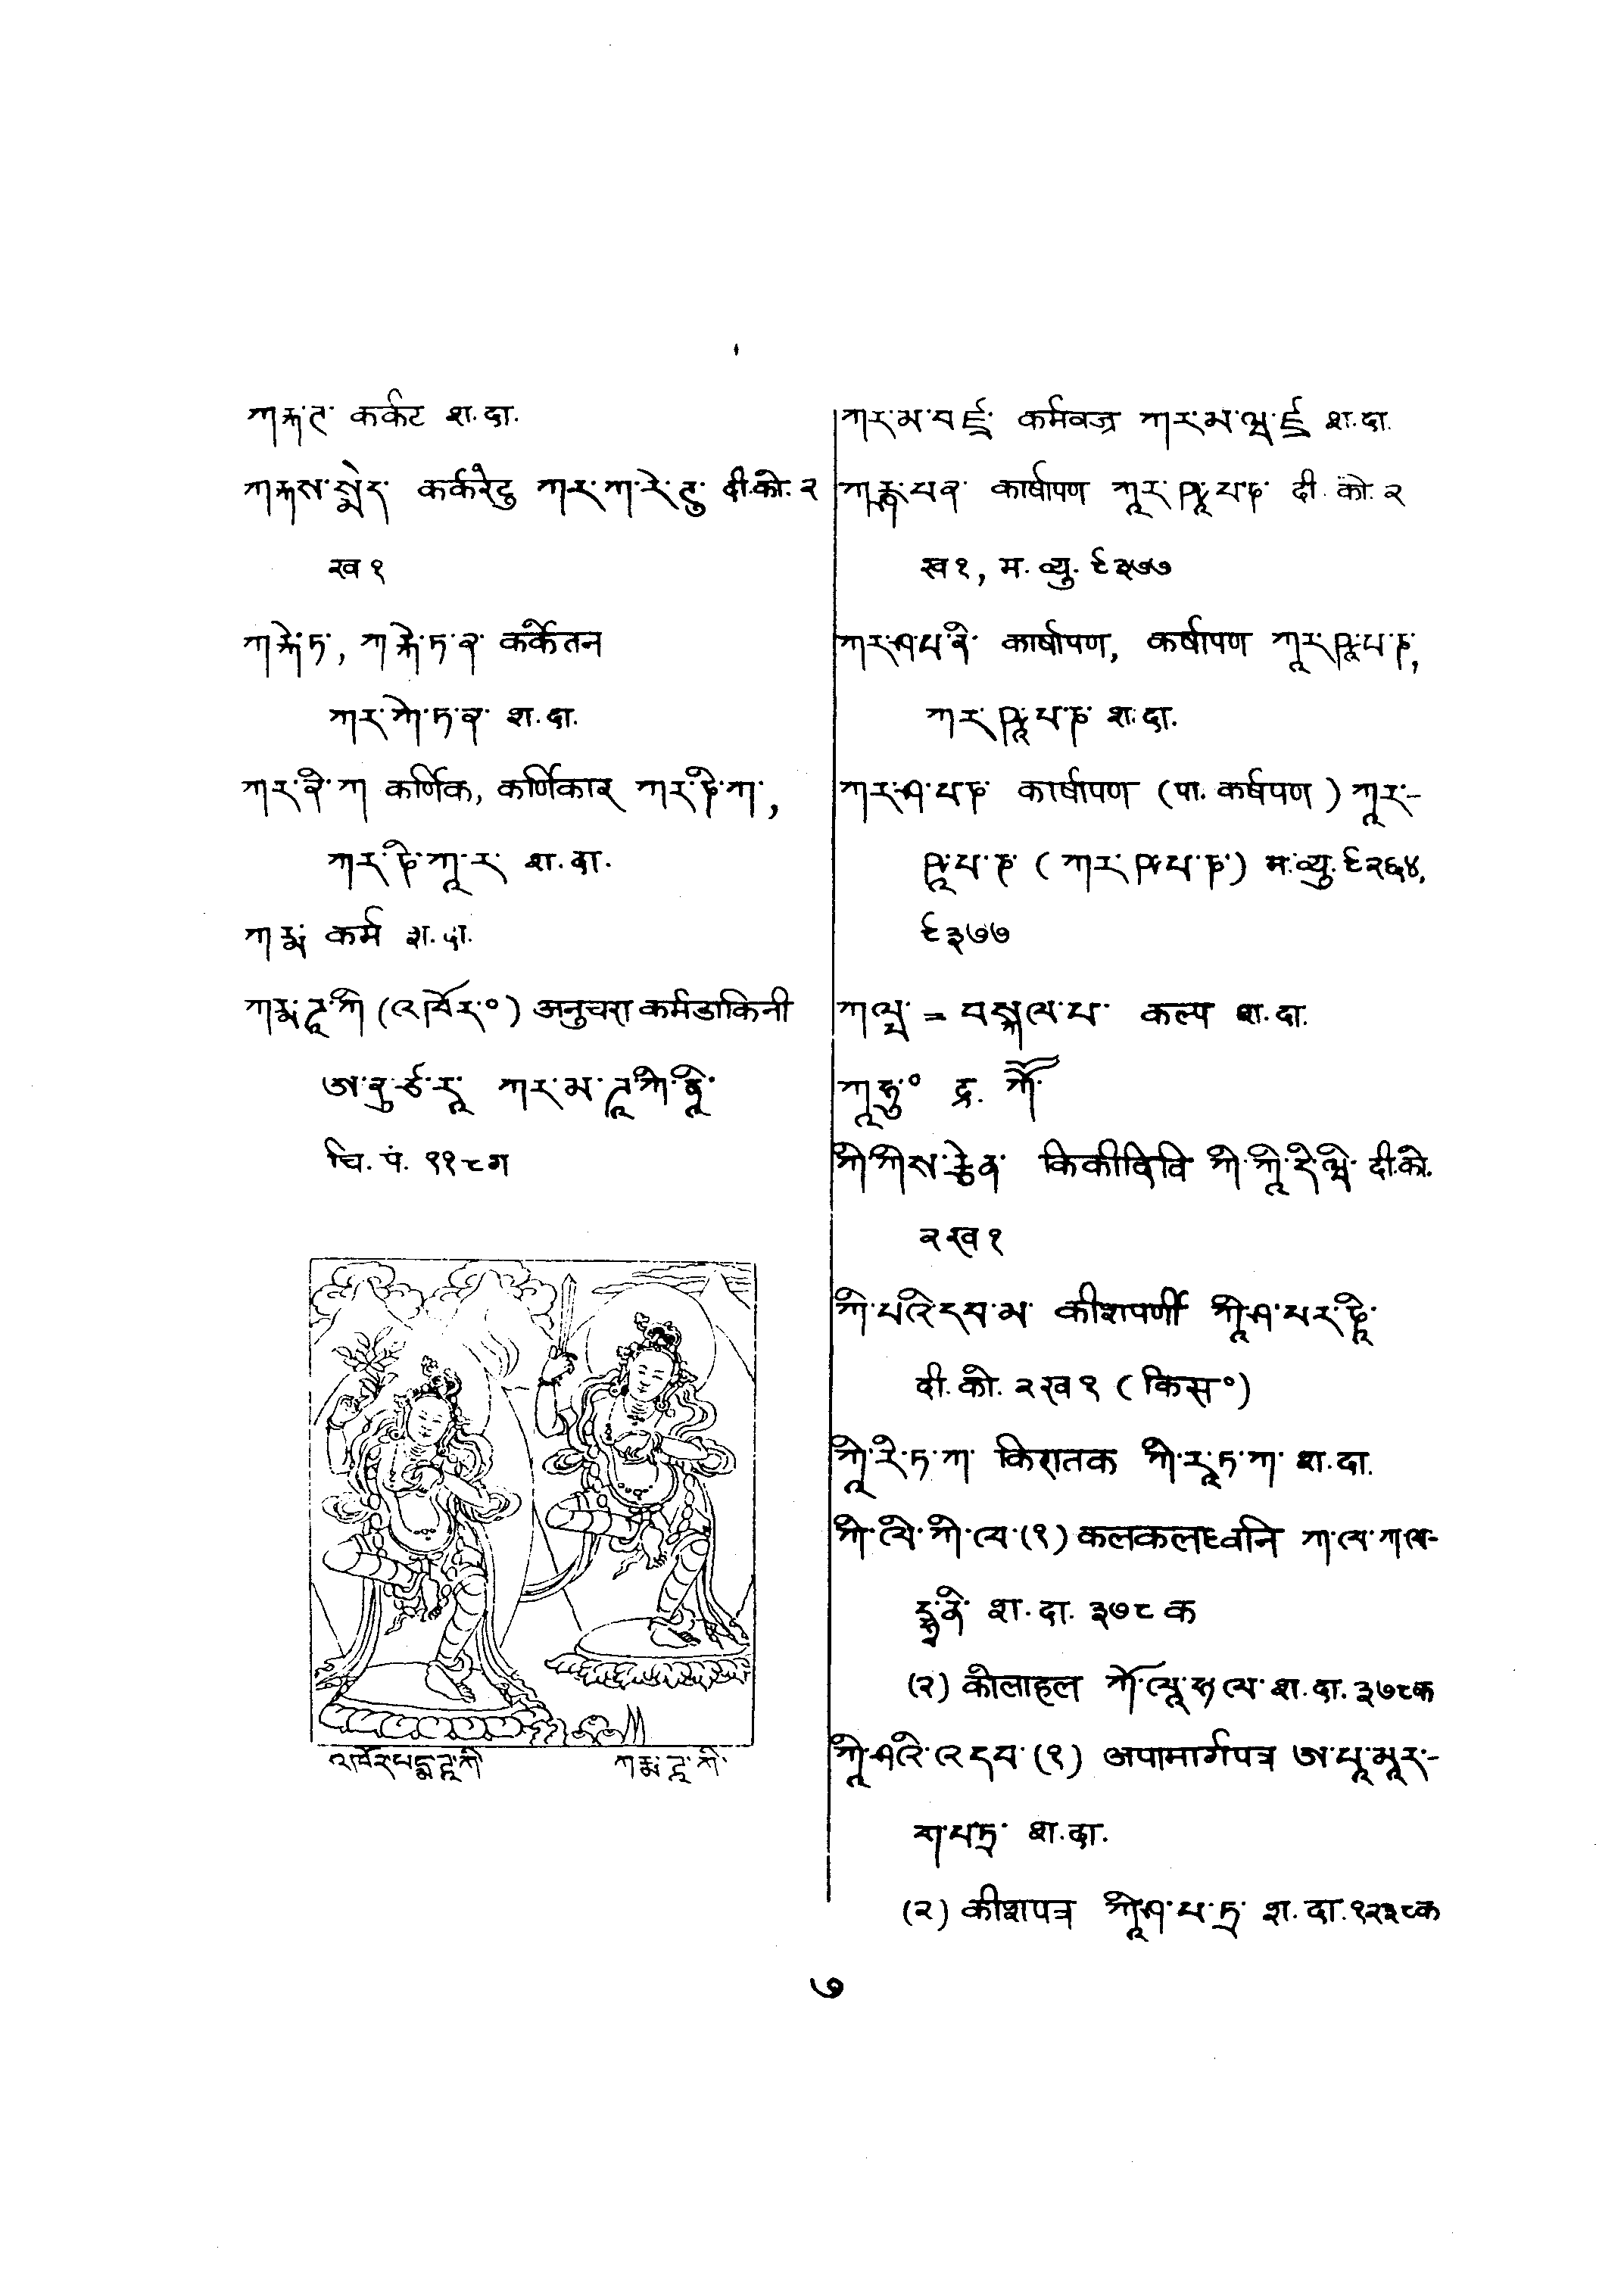 ཀརྐ་ཊ་ कर्कट श.दा.
ཀརྐས་སྨེད་ कर्करेटु ཀར་ཀ་རེ་ཊུ་ दी.को. २
ख १
ཀརྐེ་ཏ་, ཀརྐེ་ཏ་ན་ कर्केतन
ཀར་ཀེ་ཏ་ན་ श.दा.
ཀར་ནི་ཀ कर्णिक, कर्णिकार ཀར་ཎི་ཀ་,
ཀར་ཎི་ཀཱ་ར་ श.दा.
ཀརྨ་ कर्म श.दा.
ཀརྨ་ཌཱ་ཀི (འཁོར་°) अनुचरा कर्मडाकिनी
ཨ་ནུ་ཙ་རཱ་ ཀར་མ་ཌཱ་ཀི་ནཱི་
चि. पं. ११८ग
འཁོར་པདྨ་ཌཱ་ཀི
ཀརྨ་ཌཱ་ཀི་
ཀར་མ་བཛྲ་ कर्मवज्र ཀར་མ་ཝ་ཛྲ श.दा.
कार्षापण ཀཱར་ཥཱ་པ་ཎ་ दी. को. २
ख १, म. व्यु. ९३७७
ཀར་ཤ་པ་ནི་ कार्षापण, कर्षापण ཀཱར་ཥཱ་པ་ཎ་,
ཀར་ཥཱ་པ་ཎ་ श.दा.
ཀར་ཤ་པཎ་ कार्षापण (पा. कर्षपण) ཀཱར་-
ཥཱ་པ་ཎ་ (ཀར་ཥ་པ་ཎ་) म.व्यु. ९२६४,
९३७७
ཀལྤ་ = བསྐལ་པ་ कल्प श.दा.
ཀཱ་ཧུ་° द्र. ཀོ་
ཀི་ཀིས་རྩེན་ किकीदिवि ཀི་ཀཱི་དི་ཝི་ दी.को.
२ख १
ཀི་པའི་དབ་མ་ कीशपर्णी ཀཱི་ཤ་པར་ཎཱི་
दी. को. २ख १ (किस°)
ཀཱི་རི་ཏ་ཀ་ किरातक ཀི་རཱ་ཏ་ཀ་ श.दा.
ཀི་ལི་ཀི་ལ་ (१) कलकलध्वनि ཀ་ལ་ཀ་ལ-
དྷྭ་ནི་ श.दा. ३७८ क
(२) कोलाहल ཀོ་ལཱ་ཧ་ལ་ श.दा. ३७८क
ཀཱི་ཤའི་འདབ་ (१) अपामार्गपत्र ཨ་པཱ་མཱར་-
ག་པཏྲ་ श.दा.
(२) कीशपत्र ཀཱི་ཤ་པ་ཏྲ་ श. दा. १२३८क
७